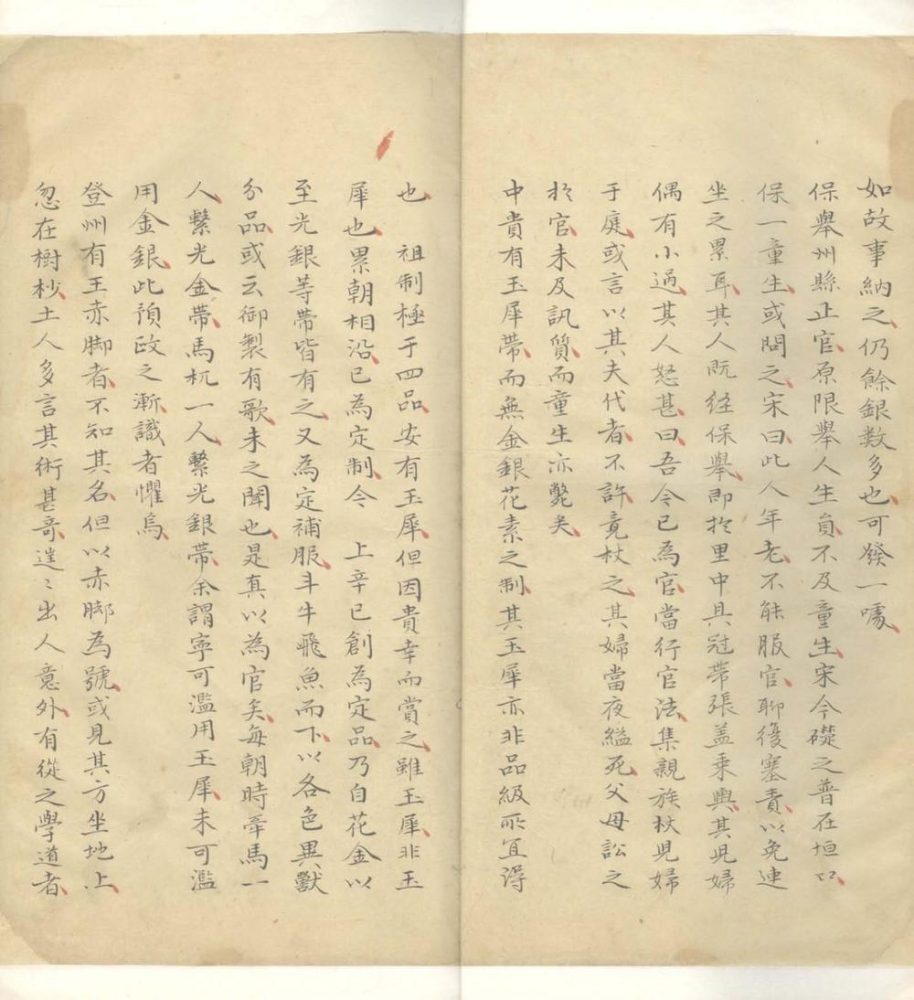 如故事納之仍餘銀数多也可發一噱
保舉州縣止官原限舉人生員不及童生宋今礎之普在垣口
保一童生或問之宋曰此人年老不能服官聊復塞責以免連
坐之累耳其人既经保舉即扵里中具冠帯張盖乘輿其児婦
偶有小過其人怒甚曰吾今已為官當行官法集親族杖児婦
于庭或言以其夫代者不許竟杖之其婦當夜縊死父母訟之
扵官未及訊質而童生亦斃矣
中貴有玉犀帶而無金銀花素之制其玉犀亦非品級所宜得
也　祖制極于四品安有玉犀但因貴幸而賞之雖玉犀非玉
犀也累朝相沿已為定制今　上辛已創為定品乃自花金以
至光銀等帯皆有之又為定補服斗牛飛魚而下以各色異獸
分品或云御製有歌未之聞也是真以為官矣每朝時牽馬一
人繫光金帶馬杌一人繫光銀帶余謂寜可濫用玉犀未可濫
用金銀此預政之漸識者懼焉
登州有王赤脚者不知其名但以赤脚為號或見其方坐地上
忽在樹杪土人多言其術甚竒迬〻出人意外有從之學道者